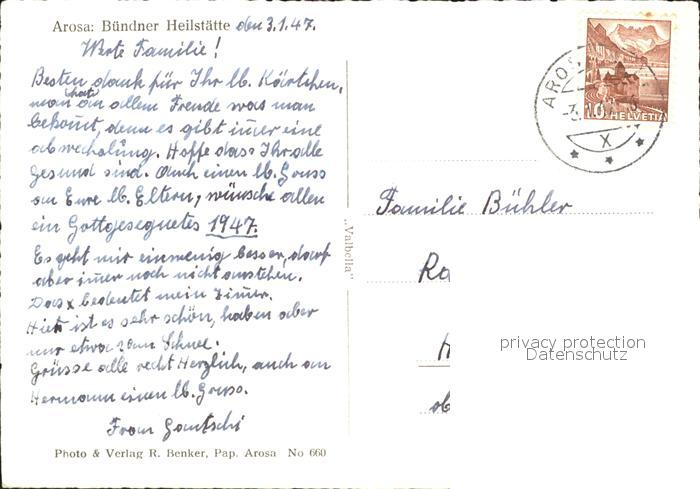 Arosa: Bündner Heilstätte den 3.1.47.
Werte Familie!
Besten dank für Ihr lb. Kärtchen,
man hat an allem Freude was man
bekomt, denn es gibt imer eine
abwechslung. Hoffe dass Ihr alle
gesund sind. Auch einen lb. Gruss
an Eure lb. Eltern, wünsche allen
ein Gottgesegnetes 1947.
Es geht mir einwenig besser, darf
aber imer noch nicht aufstehen.
Das x bedeutet mein Zimer.
Hier ist es sehr schön, haben aber
nur etwa cm Schnee.
Grüsse alle recht Herzlich, auch an
Hermann einen lb. Gruss.
Frau Gantschi
Photo & Verlag R. Benker, Pap. Arosa No 660
"Valbella"
AROS
X
10 HELVETIA
Familie Bühler
Ra
privacy protection
Datenschutz
ob